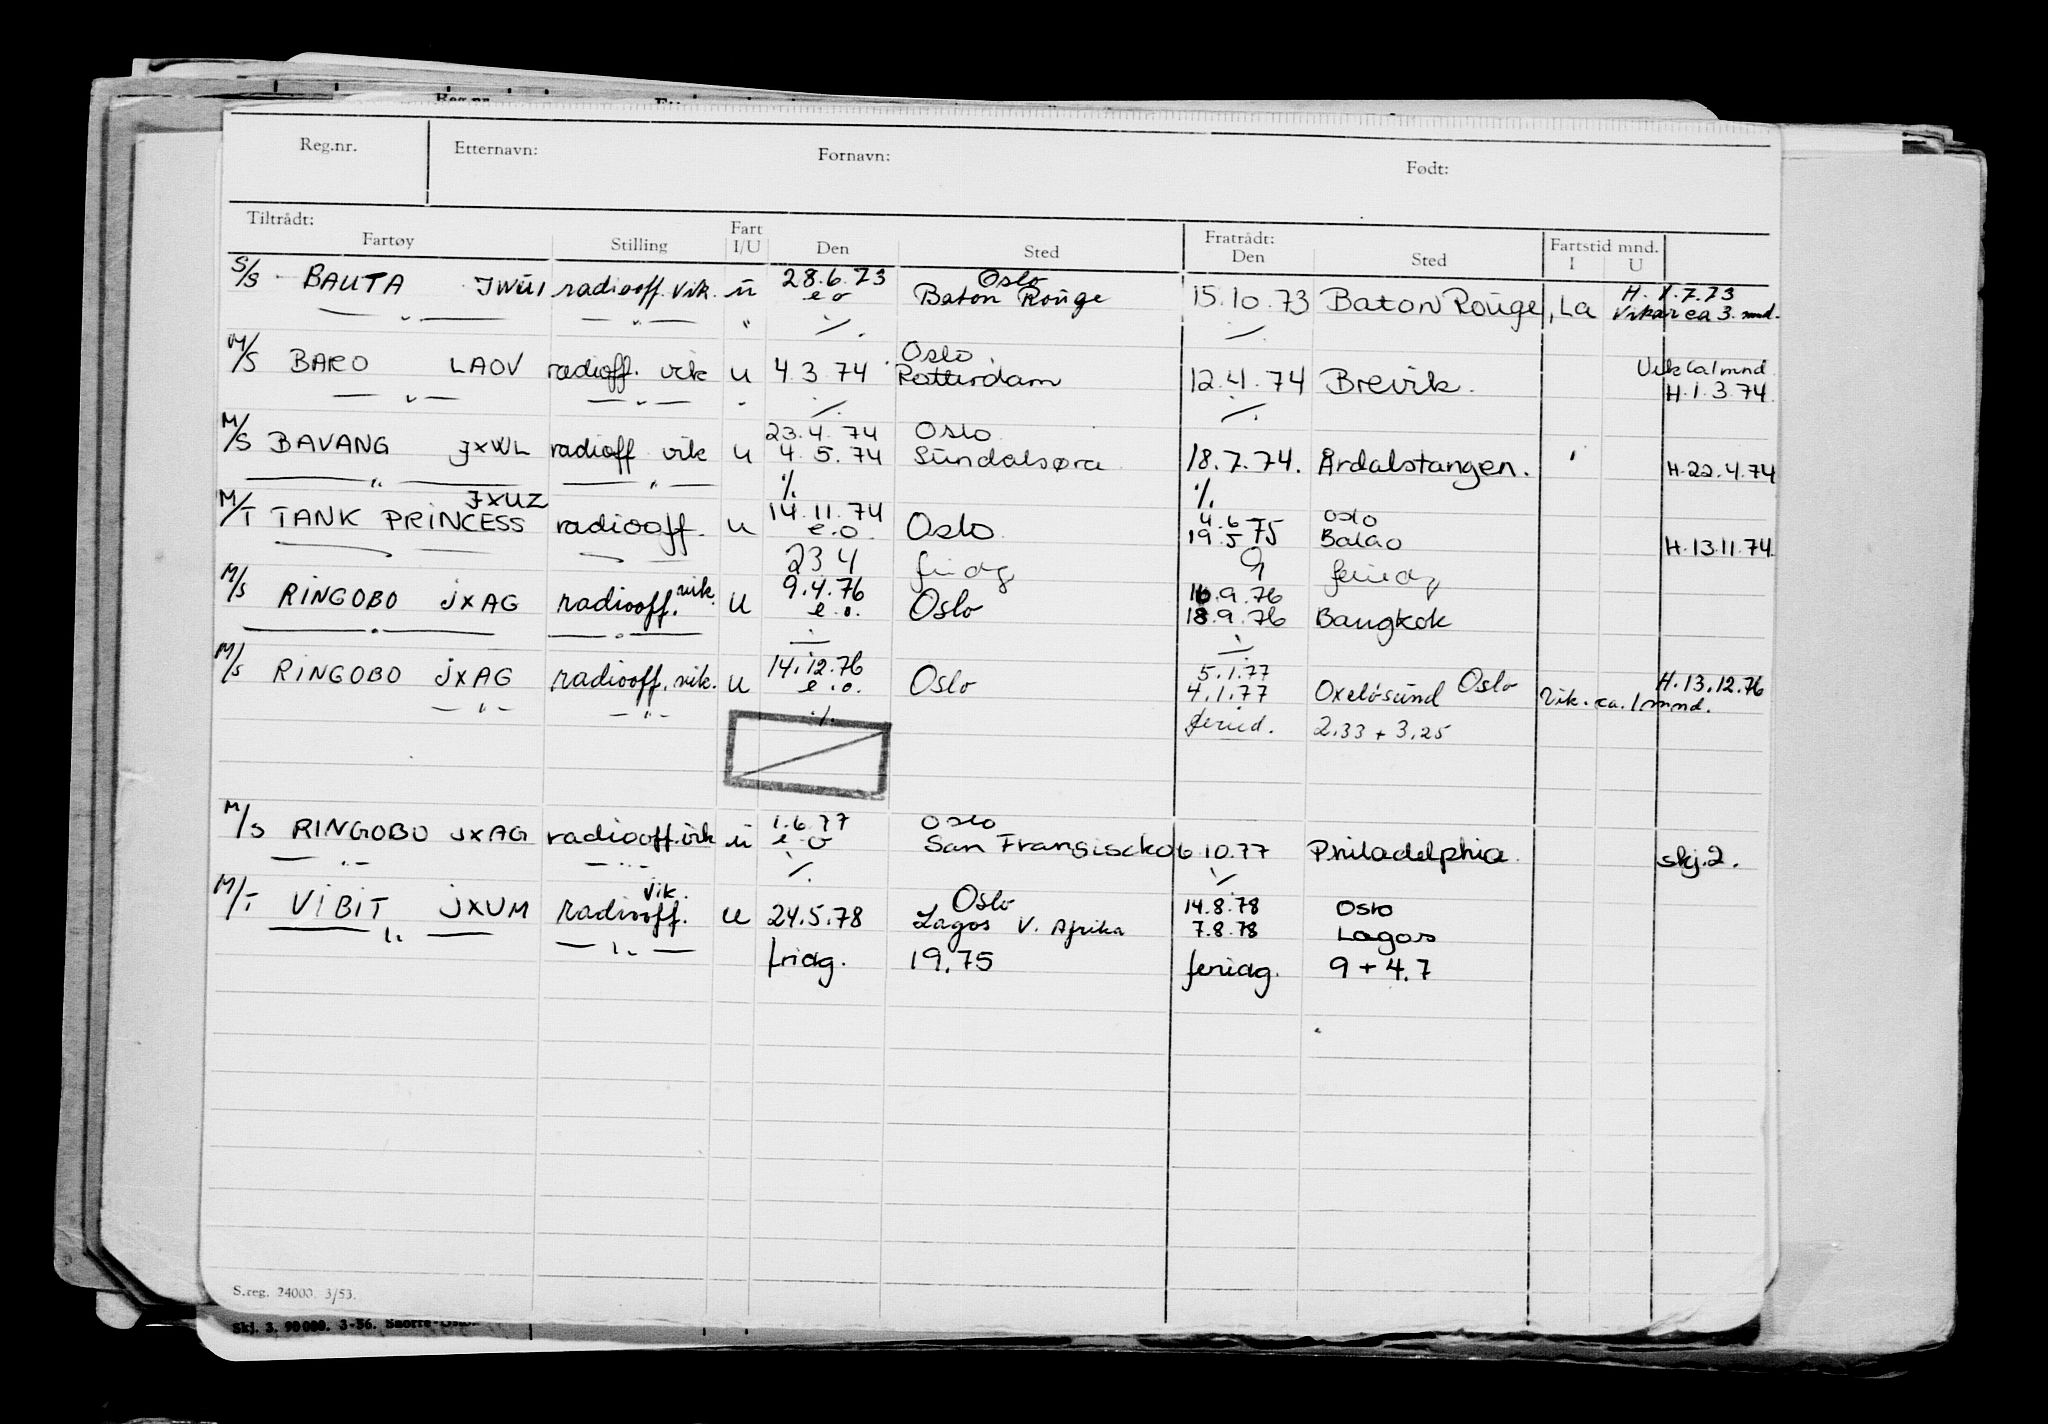 Reg.nr. Etternavn: Fornavn: Født:
Tiltrådt: Fratrådt: Fartstid mnd.
Fartøy Stilling Fart I/U Den Sted Den Sted I U
28.6.73 Oslo H. 1.7.73
S/S BAUTA JWUI radiooff. vik. u e o Baton Rouge 15.10.73 Baton Rouge, La Vikar ca 3. mnd.
Oslo Vik ca 1 mnd
M/S BARO LAOV radioff. vik u 4.3.74 Rotterdam 12.4.74 Brevik. H.1.3.74.
23.4.74 Oslo
M/S BAVANG JXWL radioff vik u 4.5.74 Sundalsøra 18.7.74. Årdalstangen. H.22.4.74
JXUZ 14.11.74 4.6 Oslo
M/T TANK PRINCESS radiooff. u e.o. Oslo 19.5 75 Balao H.13.11.74
23 4 friag 9 feriag
vik. 9.4.76 16.9.76
M/S RINGOBO JXAG radiooff. u e.o. Oslo 18.9.76 Bangkok
14.12.76 5.1.77 Oslo H.13.12.76
M/S RINGOBO JXAG radiooff. vik. u e.o. Oslo 4.1.77 Oxeløsund Vik. ca. 1 mnd.
feried. 2.33 + 3.25
1.6.77 Oslo
M/S RINGOBO JXAG radiooff. vik u e o San Fransiscko 6 10.77 Philadelphia. skj.2.
vik. Oslo 14.8.78 Oslo
M/T VIBIT JXUM radiooff. u 24.5.78 Lagos V. Afrika 7.8.78 Lagos
friag. 19.75 feriag. 9 + 4.7
S.reg. 24000. 3/53.
Skj. 3. 90 000. 3-56.